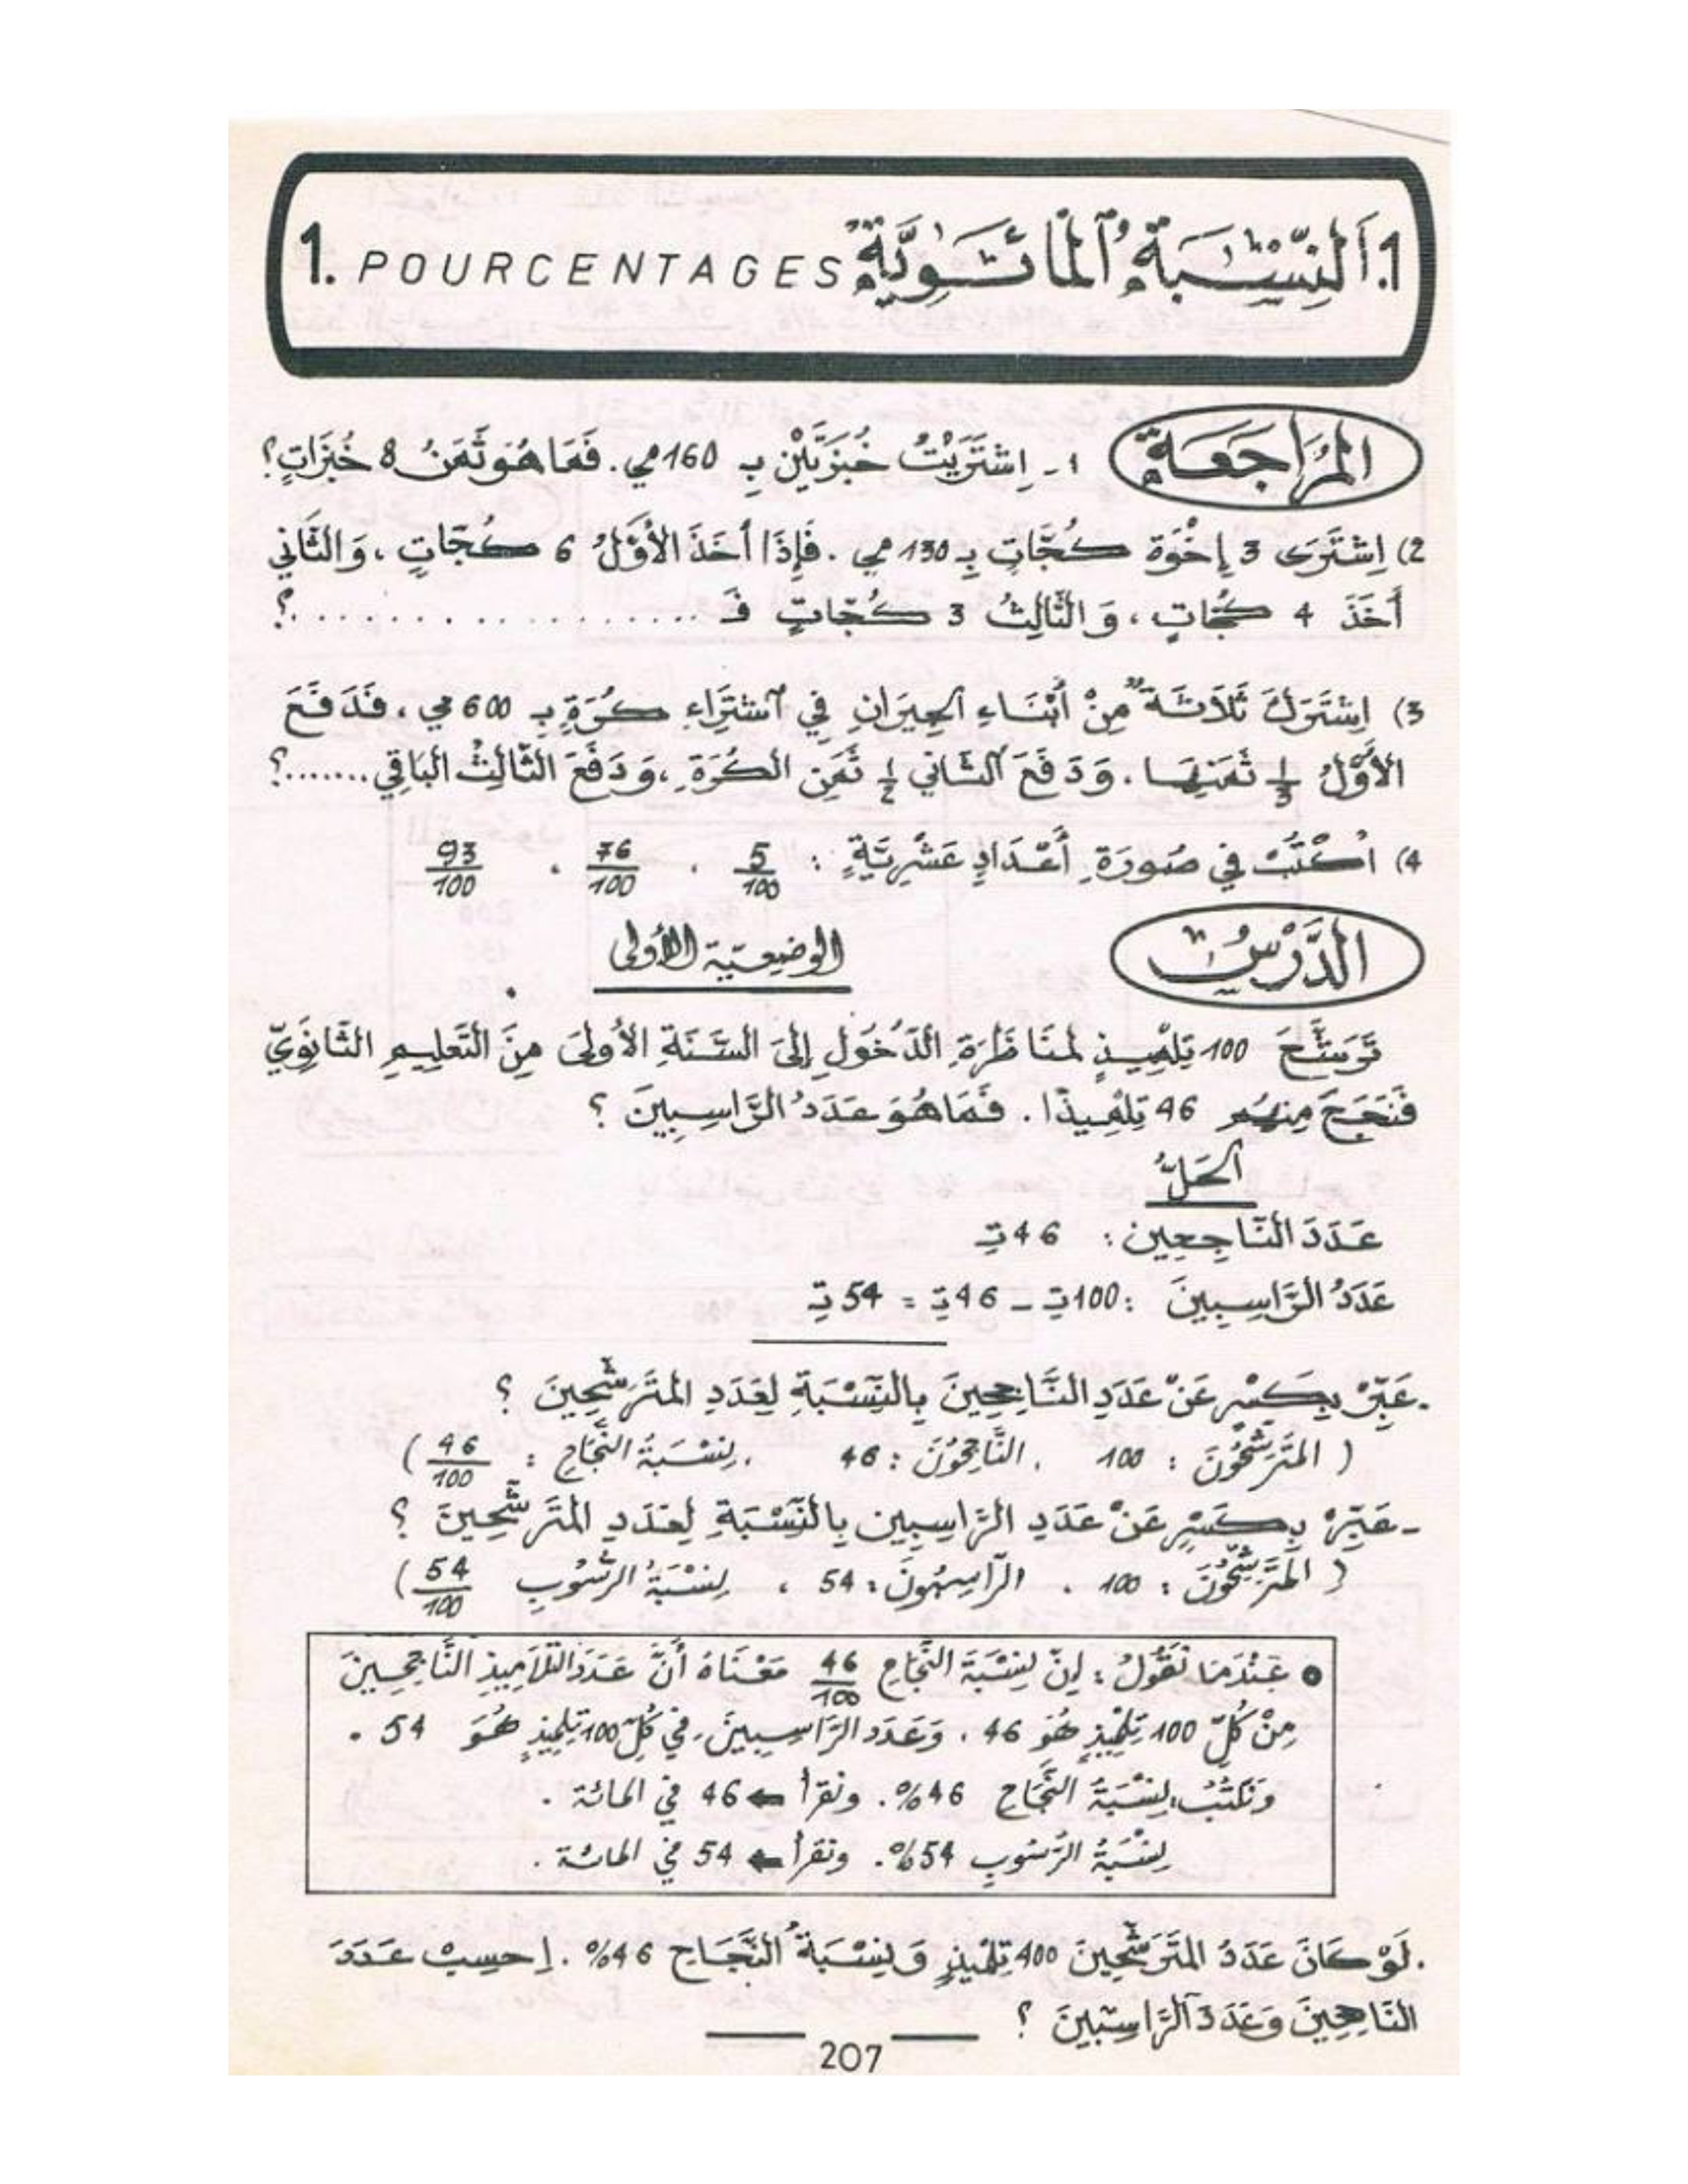 1. اَلنِّسْبَةُ ٱلْمَائَوِيَّةُ POURCENTAGES .1
المُرَاجَعَةُ
1- اِشْتَرَيْتُ خُبْزَتَيْنِ بِ 160 مي. فَمَا هُوَ ثَمَنُ 8 خُبْزَاتٍ؟
2) اِشْتَرَى 3 إِخْوَة كُجَّاتٍ بِـ 130 مي. فَإِذَا أَخَذَ الأَوَّلُ 6 كُجَّاتٍ، وَالثَّانِي
أَخَذَ 4 كُجَّاتٍ، وَالثَّالِثُ 3 كُجَّاتٍ فَـ ..................؟
3) اِشْتَرَكَ ثَلَاثَةٌ مِنْ أَبْنَاءِ الجِيرَانِ فِي ٱشْتِرَاءِ كُرَةٍ بِـ 600 مي، فَدَفَعَ
الأَوَّلُ 1/3 ثَمَنِهَا. وَدَفَعَ الثَّانِي 1/2 ثَمَنِ الكُرَةِ، وَدَفَعَ الثَّالِثُ البَاقِي.......؟
4) اُكْتُبْ فِي صُورَةِ أَعْدَادٍ عَشْرِيَّةٍ : 5/100 . 76/100 . 93/100
الدَّرْسُ
الوضعيّة الأولى
تَرَشَّحَ 100 تِلْمِيذٍ لِمُنَاظَرَةِ الدُّخُولِ إِلَى السَّنَةِ الأُولَى مِنَ التَّعْلِيمِ الثَّانَوِيِّ
فَنَجَحَ مِنْهُمْ 46 تِلْمِيذًا. فَمَا هُوَ عَدَدُ الرَّاسِبِينَ ؟
الحَلُّ
عَدَدَ النَّاجِحِين : 46 تِـ
عَدَدُ الرَّاسِبِينَ : 100 تِـ – 46 تِـ = 54 تِـ
.عَبِّرْ بِكَسْرٍ عَنْ عَدَدِ النَّاجِحِينَ بِالنِّسْبَةِ لِعَدَدِ المُتَرَشِّحِينَ ؟
( المُتَرَشِّحُونَ : 100 . النَّاجِحُونَ : 46 . نِسْبَةُ النَّجَاحِ : 46/100 )
-عَبِّرْ بِكَسْرٍ عَنْ عَدَدِ الرَّاسِبِين بِالنِّسْبَةِ لِعَدَدِ المُتَرَشِّحِينَ ؟
( المُتَرَشِّحُونَ : 100 . الرَّاسِبُونَ : 54 ، نِسْبَةُ الرُّسُوبِ 54/100 )
• عِنْدَمَا نَقُولُ : إِنَّ نِسْبَةَ النَّجَاحِ 46/100 مَعْنَاهُ أَنَّ عَدَدَ التَّلَامِيذِ النَّاجِحِينَ
مِنْ كُلِّ 100 تِلْمِيذٍ هُوَ 46 ، وَعَدَدَ الرَّاسِبِينَ فِي كُلِّ 100 تِلْمِيذٍ هُوَ 54 .
وَنَكْتُبُ: نِسْبَةُ النَّجَاحِ 46%. ونقرأ ← 46 في المائة .
نِسْبَةُ الرُّسُوبِ 54%. ونقرأ ← 54 في المائة .
.لَوْ كَانَ عَدَدُ المُتَرَشِّحِينَ 400 تِلْمِيذٍ وَنِسْبَةُ النَّجَاحِ 46%. اِحْسِبْ عَدَدَ
النَّاجِحِينَ وَعَدَدَ الرَّاسِبِينَ ؟
207